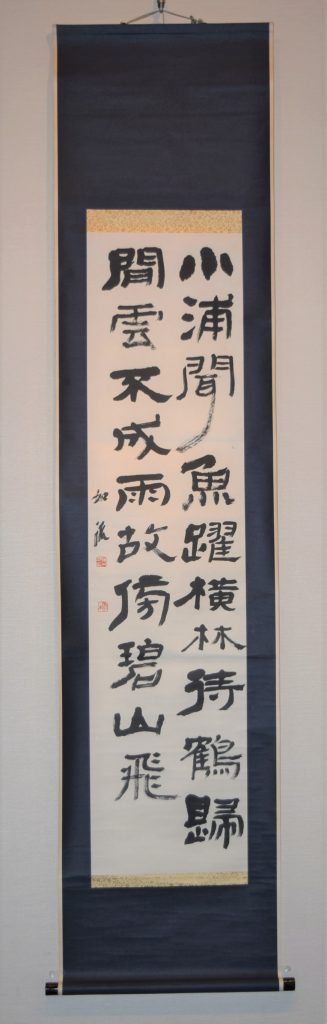 小浦聞魚躍橫林待鶴歸
閒雲不成雨故傍碧山飛